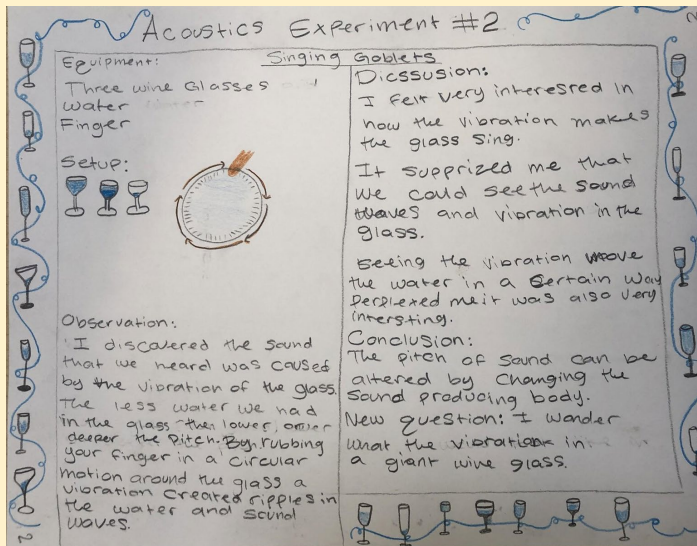 Acoustics Experiment #2
Singing Goblets
Equipment:
Three wine Glasses
water
Finger
Setup:
Observation:
I discovered the sound
that we heard was caused
by the vibration of the glass.
The less water we had
in the glass the lower, or
deeper the pitch. By rubbing
your finger in a circular
motion around the glass a
vibration created ripples in
the water and sound
waves.
Dicssusion:
I felt very interesred in
how the vibration makes
the glass sing.
It supprized me that
we could see the sound
waves and vibration in the
glass.
Seeing the vibration move
the water in a certain way
perplexed me it was also very
intersting.
Conclusion:
The pitch of sound can be
altered by changing the
sound producing body.
New question: I wonder
what the vibration in
a giant wine glass.
2